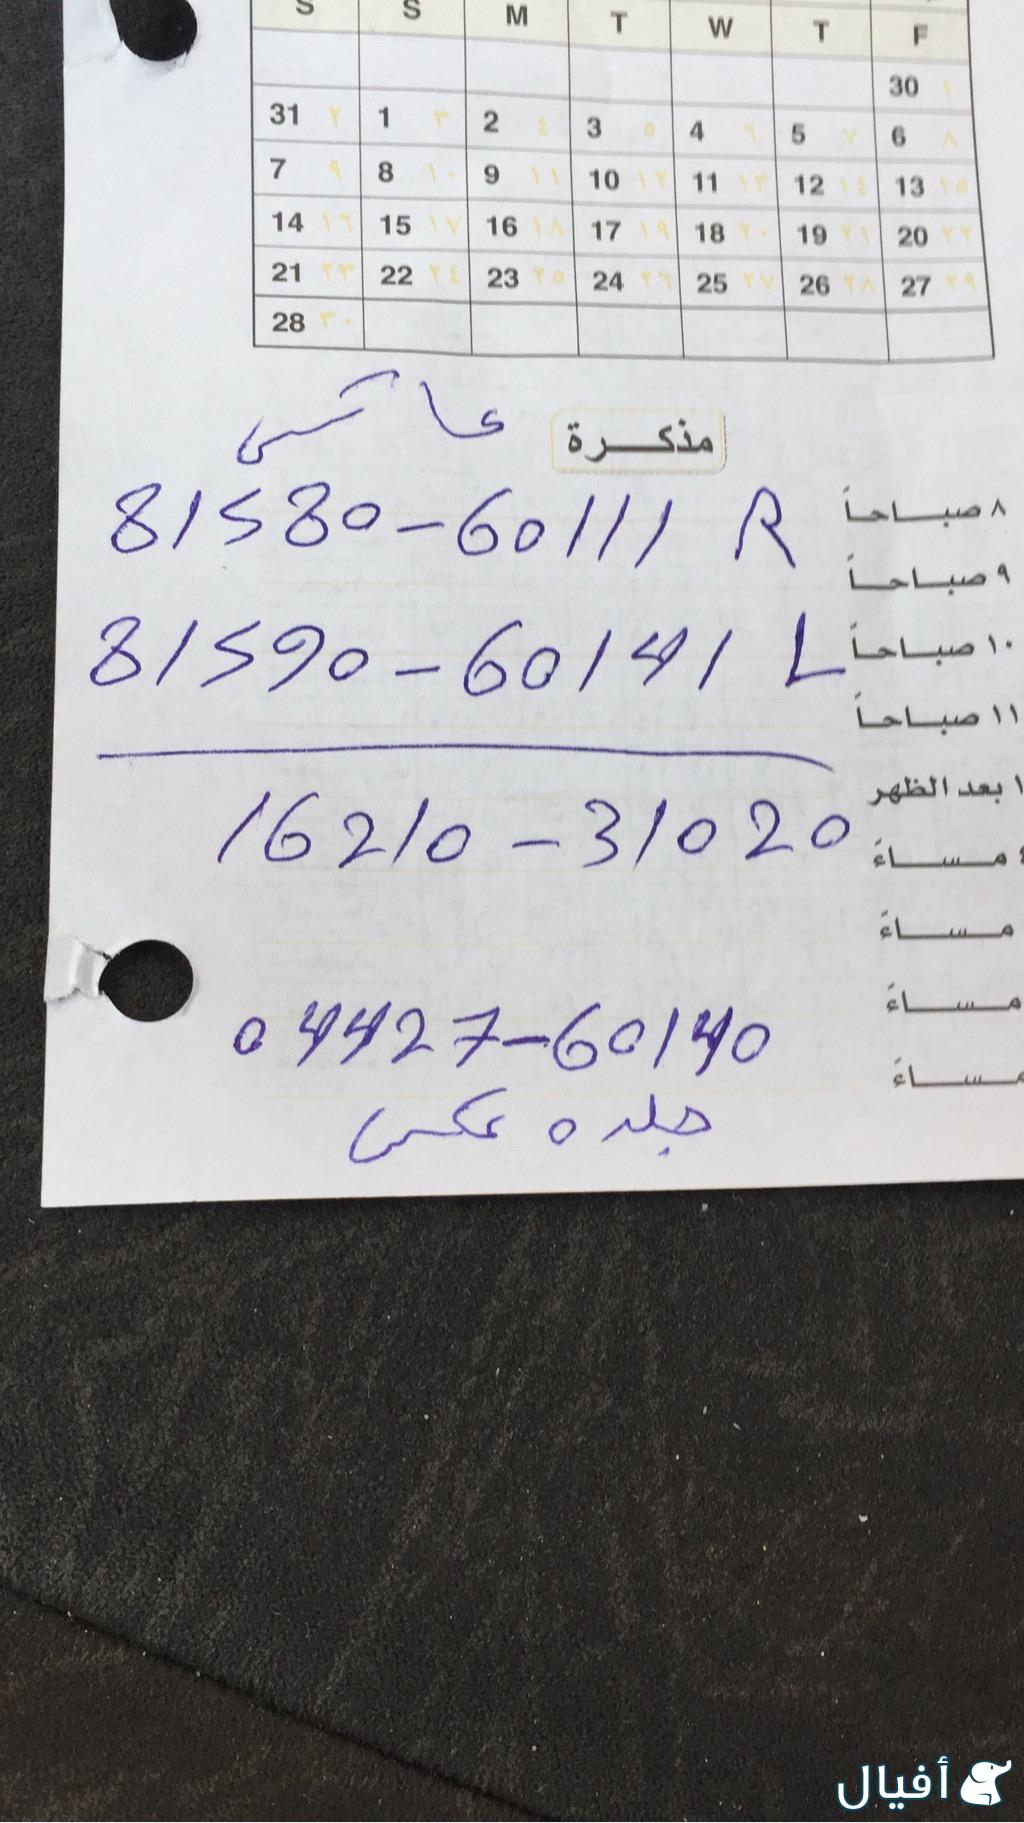 S S M T W T F
30 ١
31 ٢ 1 ٣ 2 ٤ 3 ٥ 4 ٦ 5 ٧ 6 ٨
7 ٩ 8 ١٠ 9 ١١ 10 ١٢ 11 ١٣ 12 ١٤ 13 ١٥
14 ١٦ 15 ١٧ 16 ١٨ 17 ١٩ 18 ٢٠ 19 ٢١ 20 ٢٢
21 ٢٣ 22 ٢٤ 23 ٢٥ 24 ٢٦ 25 ٢٧ 26 ٢٨ 27 ٢٩
28 ٣٠
مذكـــرة
٨ صبـــاحــاً
81580-60111 R
٩ صبـــاحــاً
١٠ صبـــاحــاً
81590-60141 L
١١ صبـــاحــاً
١ بعد الظهر
16210-31020
٤ مســـاءً
مســـاءً
مســـاءً
04427-60140
مســـاءً
جلده عكس
أفيال